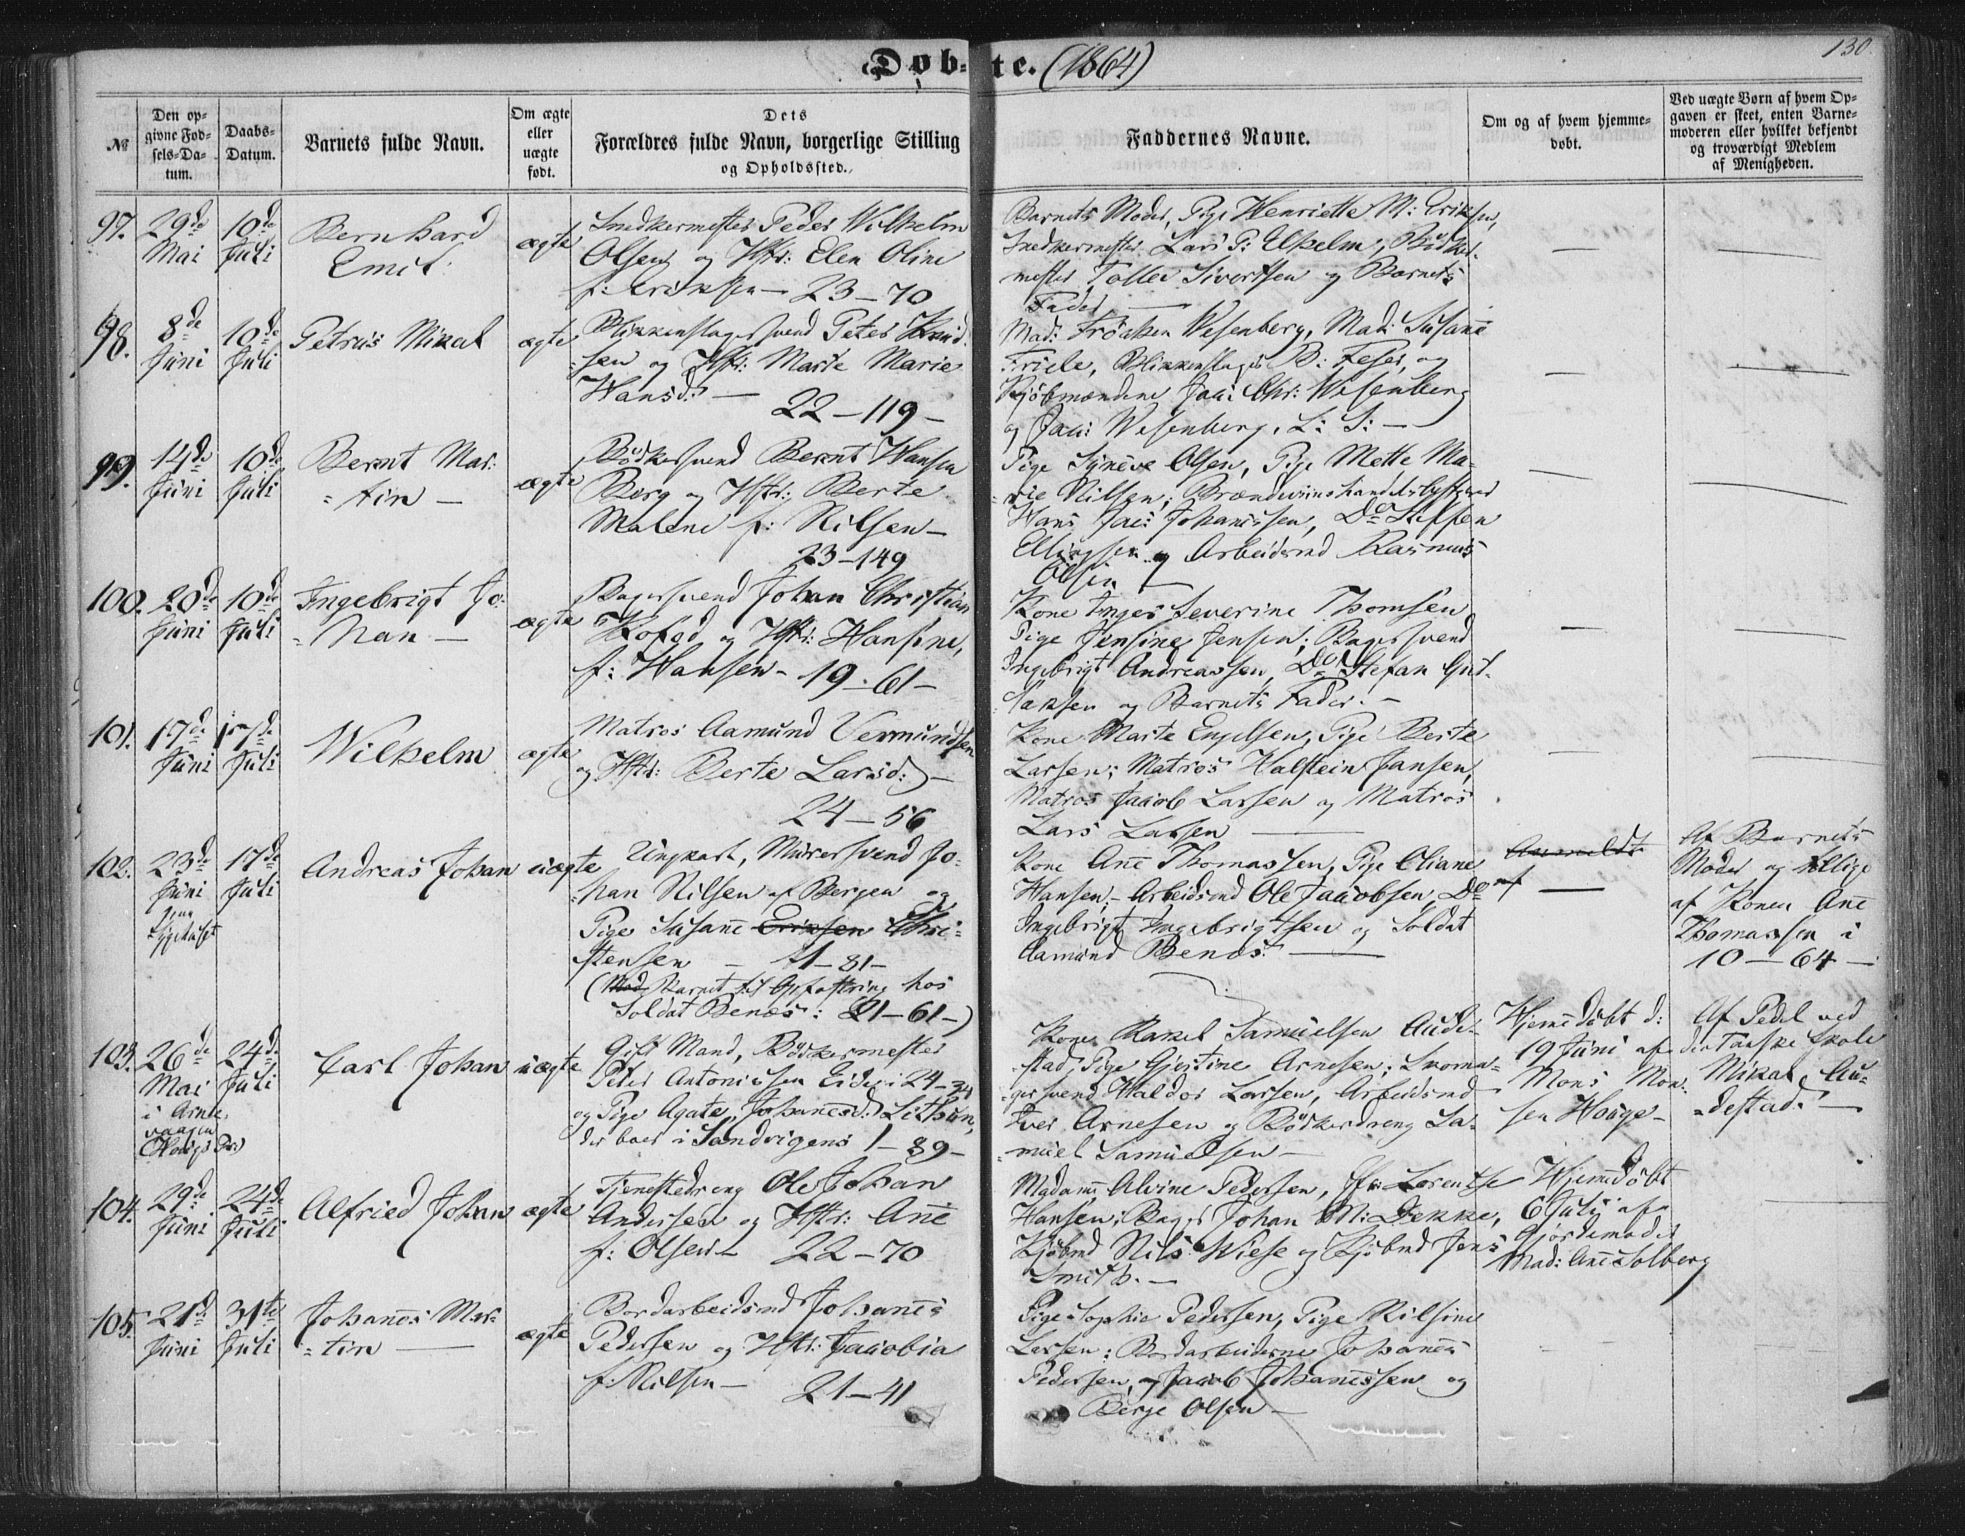 Døb-te. (1864)
130.
№
Den op-
givne Fød-
sels-Da-
tum.
Daabs-
Datum.
Barnets fulde Navn.
Om ægte
eller
uægte
født.
Dets
Forældres fulde Navn, borgerlige Stilling
og Opholdssted.
Faddernes Navne.
Om og af hvem hjemme-
døbt.
Ved uægte Børn af hvem Op-
gaven er skeet, enten Barne-
moderen eller hvilket bekjendt
og troværdigt Medlem
af Menigheden.
97.
29de
Mai
10de
Juli
Bernhard
Emil
ægte
Snedkermester Peder Wilhelm
Olsen og Hstr: Elen Oline
f: Eriksen — 23—70
Barnets Moder, Pige Henriette M: Eriksen,
Snedkermester Lars P:
mester Tollev Sivertsen og Barnets
Fader —
98.
8de
Juni
10de
Juli
Petrus Mikal
ægte
Blikkenslagersvend Peter Knud-
sen og Hstr: Marte Marie
Hansd: —
22—119—
Mad: Frøchen Wesenberg, Mad: Susanne
Friele, Blikkenslager B: Feser, og
Kjøbmændene Jac: Chr: Wesenberg
og Jac: Wesenberg, L: S: —
99.
14de
Juni
10de
Juli
Bernt Mar-
tin —
ægte
Bødkersvend Bernt Hansen
Berg og Hstr: Berte
Malene f: Nilsen —
23—149
Pige Synneve Olsen, Pige Mette Ma-
rie Nilsen; Brændeviinshandelsbestyrer
Hans Jac: Johannessen, Do Steffen
Ellingsen og Arbeidsmd Rasmus
Olsen —
100.
20de
Juni
10de
Juli
Ingebrigt Jo-
han —
ægte
Bagersvend Johan Christian
Kofod og Hstr: Hansine,
f: Hansen — 19—61—
Kone Inger Severine Thomsen
Pige Jensine Jensen; Bagersvend
Ingebrigt Andreassen, Do Stefan Gut-
laksen og Barnets Fader. —
101.
17de
Juni
17de
Juli
Wilhelm
ægte
Matros Aamund Vermundsen
og Hstr: Berte Larsd: —
24—56
Kone Marte Engelsen, Pige Berte
Larsen; Matros Halstein Jansen,
Matros Jacob Larsen og Matros
Lars Larsen —
102.
23de
Juni
17de
Juli
Andreas Johan
uægte
Ungkarl, Murersvend Jo-
han Nilsen af Bergen og
Pige Susanne Eriksen Chri-
stensen — 1—81—
(Mod Barnet til Opfostring hos
Soldat Benæs: 21—61—)
Kone Ane Thomassen, Pige Oliane
Hansen; Arbeidsmd Ole Jacobsen, Do
Ingebrigt Ingebrigtsen og Soldat
Aamund Benæs. —
Af Barnets
Moder og tillige
af Konen Ane
Thomassen i
10—64—
103.
26de
Mai
i Arne-
vaagen
24de
Juli
Carl Johan
uægte
Gift Mand, Bødkermester
Peter Antoniussen Eide i 24—34
og Pige Agate Johannesd:
der boer i Sandvigens 1—89—
Kone Rakel Samuelsen Aude-
stad, Pige Gjertine Arnesen; Skoma-
gersvend Haldor Larsen, Arbeidsmd
Iver Arnesen og Bødkerdreng Sa-
muel Samuelsen —
Hjemmedøbt d:
19 Juni af
Mons Mon-
sen Hauge —
Af Pedel ved
den Tanske Skole
Mikal Au-
destad. —
104.
29de
Juni
24de
Juli
Alfried Johan
ægte
Tjenestedreng Ole Johan
Andersen og Hstr: Ane
f: Olsen — 22—70
Madam Alvine Pedersen, Lorentse
Hansen; Bager Johan M: Dekke,
Kjøbmd Nils Wiese og Kjøbmd Jens
Smith. —
Hjemmedøbt
6 Juli af
Gjordemoder
Mad: Ane Solberg
105.
21de
Juni
31te
Juli
Johannes Mar-
tin —
ægte
Bordarbeidsmd Johannes
Pedersen og Hstr: Jacobia
f: Nilsen — 21—41
Pige Sophie Pedersen, Pige Nilsine
Larsen; Bordarbeiderne Johannes
Pedersen, og Jacob Johannessen og
Berge Olsen —